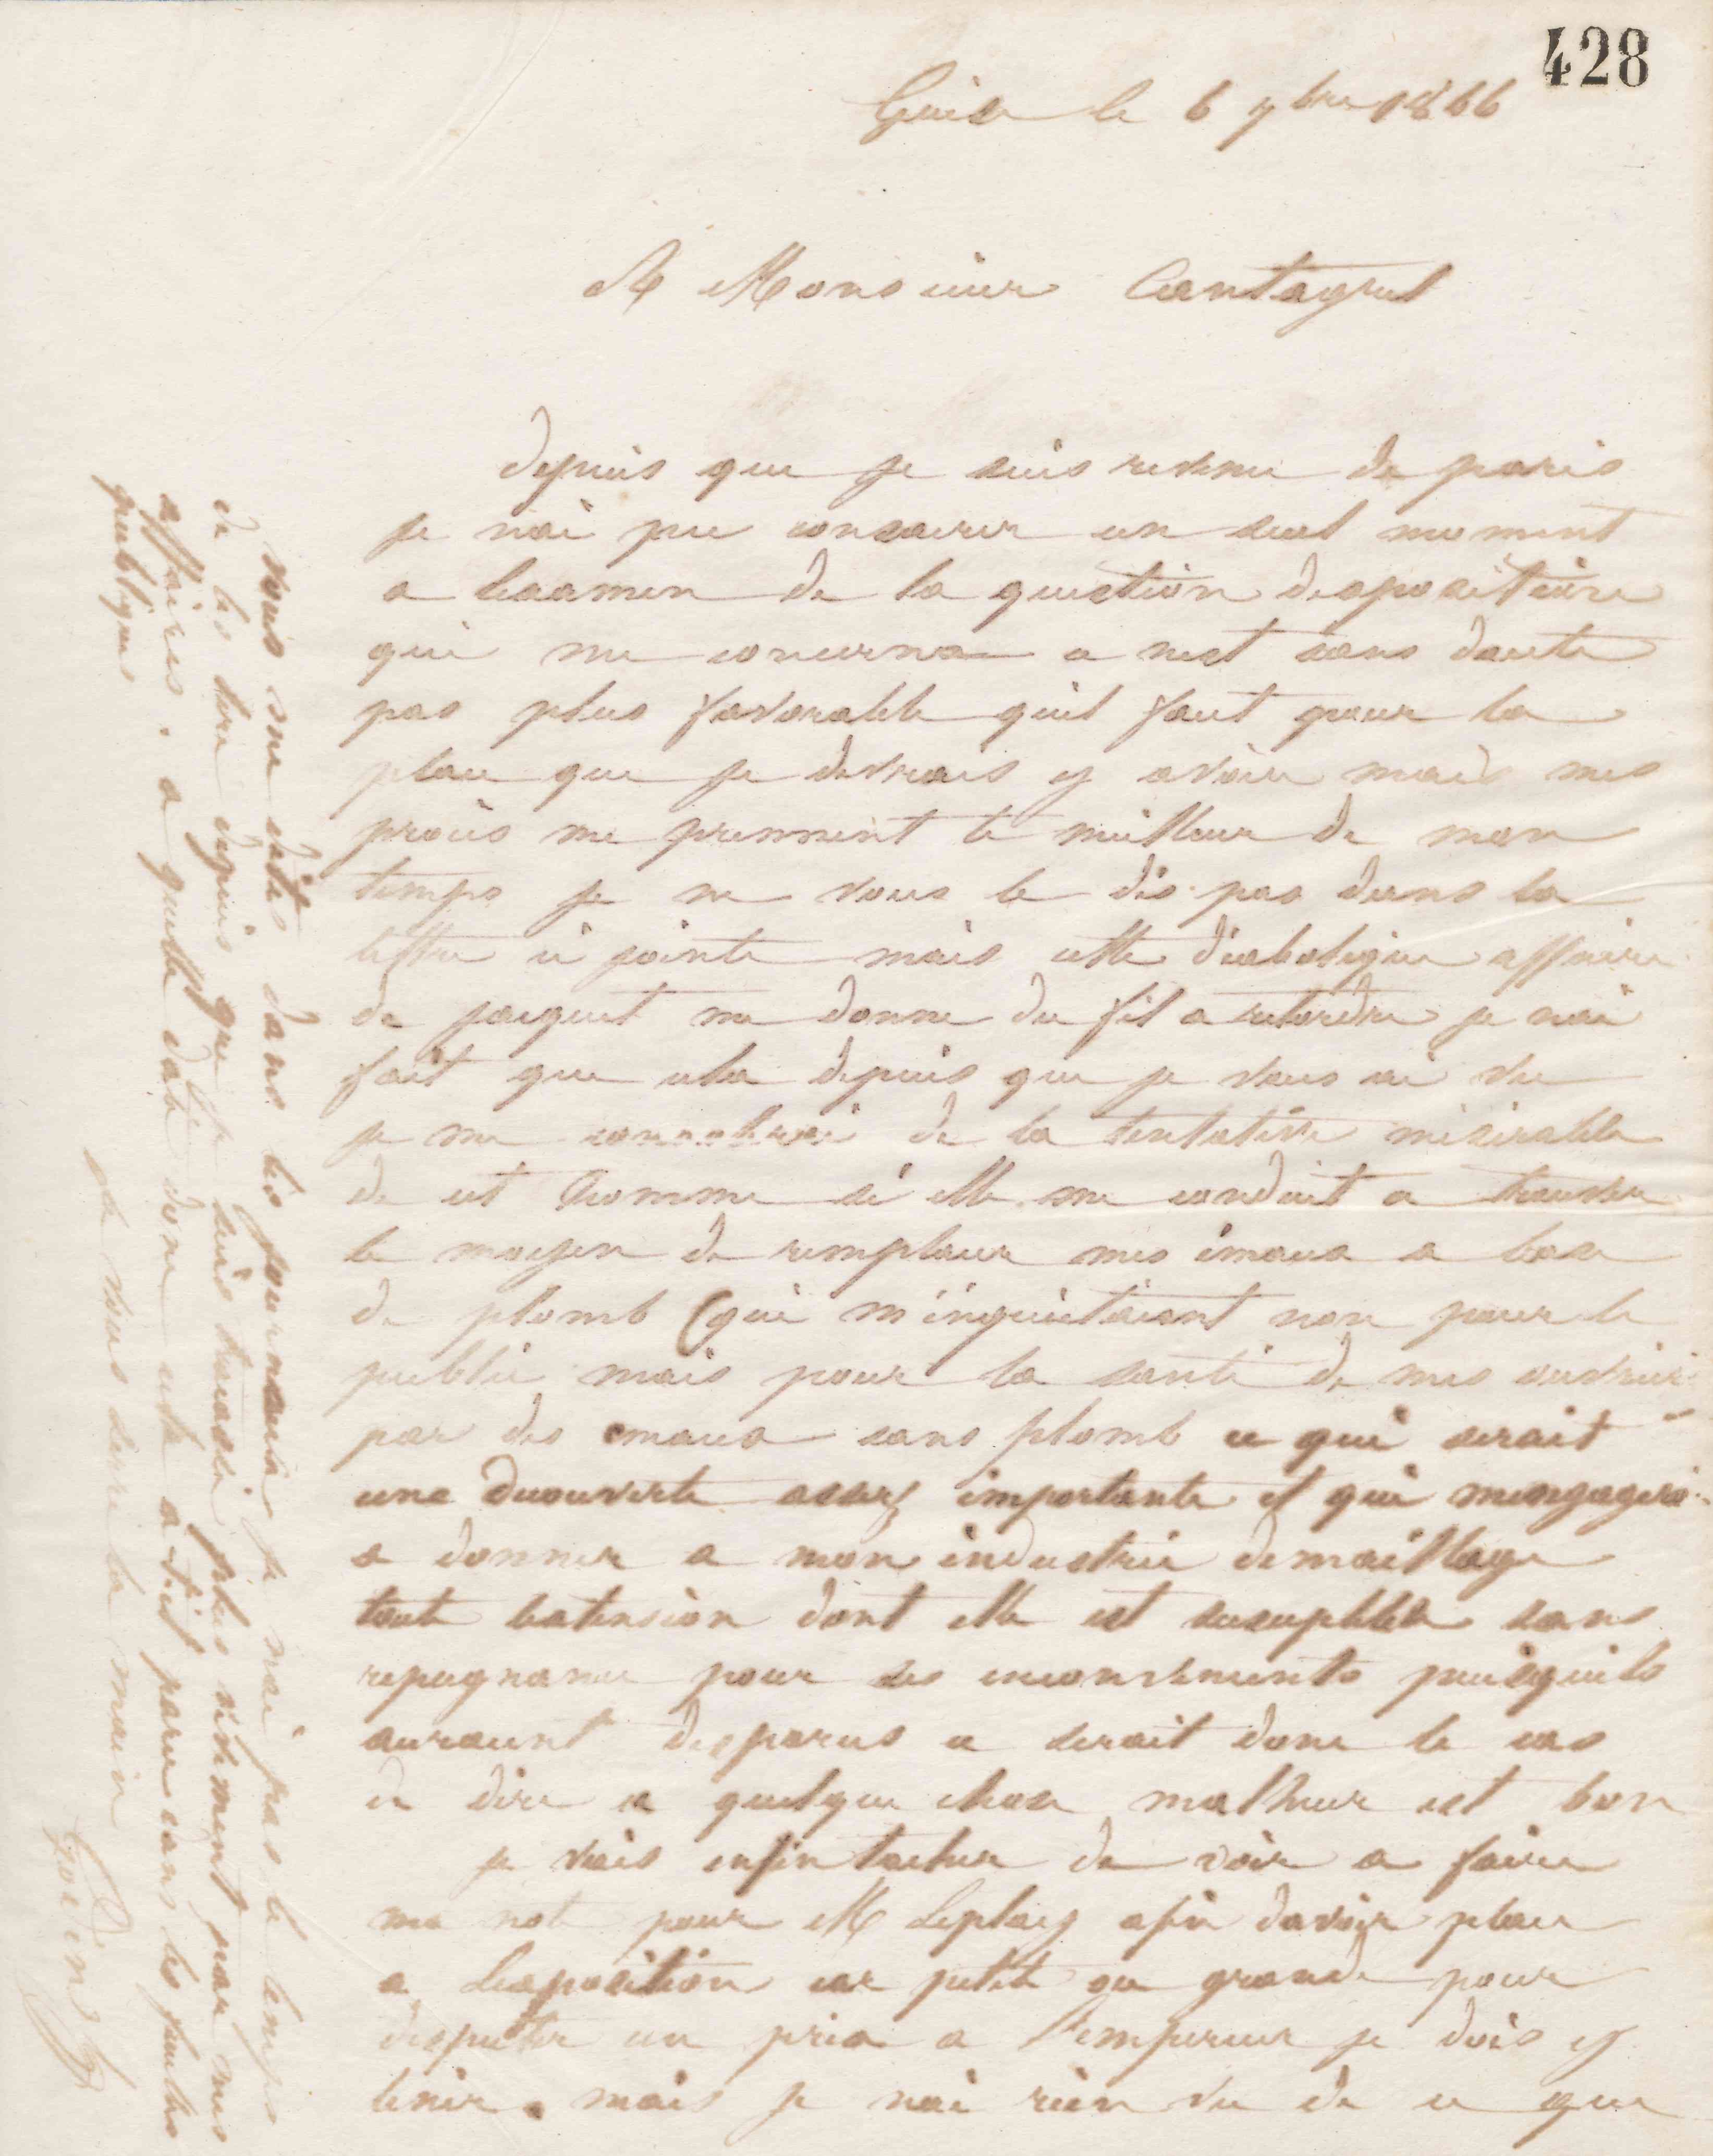 428
Guise le 6 7bre 1866
A Monsieur Cantagrel
depuis que je suis revenu de paris
je nai pu consacrer un seul moment
a lexamen de la question dexposition
qui me concerne ce nest sans doute
pas plus favorable quil faut pour la
place que je devrais y avoir mais mes
procès me prennent le meilleur de mon
temps je ne vous le dis pas dans la
lettre ci jointe mais cette diabolique affaire
de parquet me donne du fil a retordre je nai
fait que cela depuis que je vous ai vu
je me consolerai de la tentative misérable
de cet homme si elle me conduit a trouver
le moyen de remplacer mes émaux a base
de plomb (qui m'inquiètaient non pour le
public mais pour la santé de mes ouvriers
par des emaux sans plomb ce qui serait
une decouverte assez importante et qui mengagerai
a donner a mon industrie demaillage
toute lextension dont elle est susceptible sans
repugnance pour les inconvenients puisquils
auraient disparus ce serait donc le cas
de dire a quelque chose malheur est bon
je vais enfin tacher de voir a faire
ma note pour M Leplay afin davoir place
a lexposition car petite ou grande pour
disputer un prix a l'empereur je dois y
tenir. mais je nai rien vu de ce que
vous me dites dans les journaux je nai pas le temps
de les lire depuis que je suis tracassé plus vivement par mes
affaires. a quelle date donc cela a-t-il paru dans les feuilles
publiques
je vous serre la main
Godin